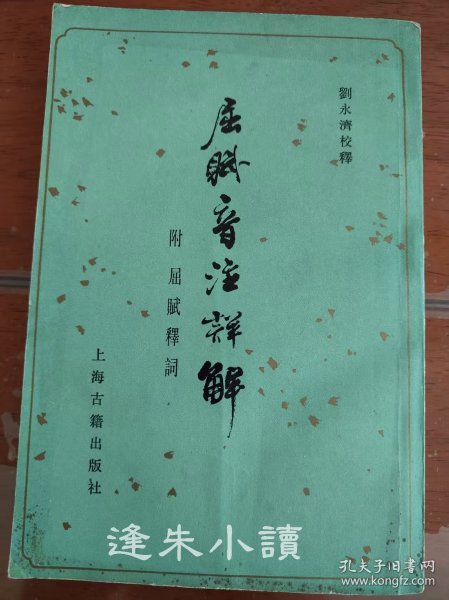 劉永濟校釋
屈賦音注詳解
附屈賦釋詞
上海古籍出版社
逢朱小讀
孔夫子旧书网
www.kongfz.com